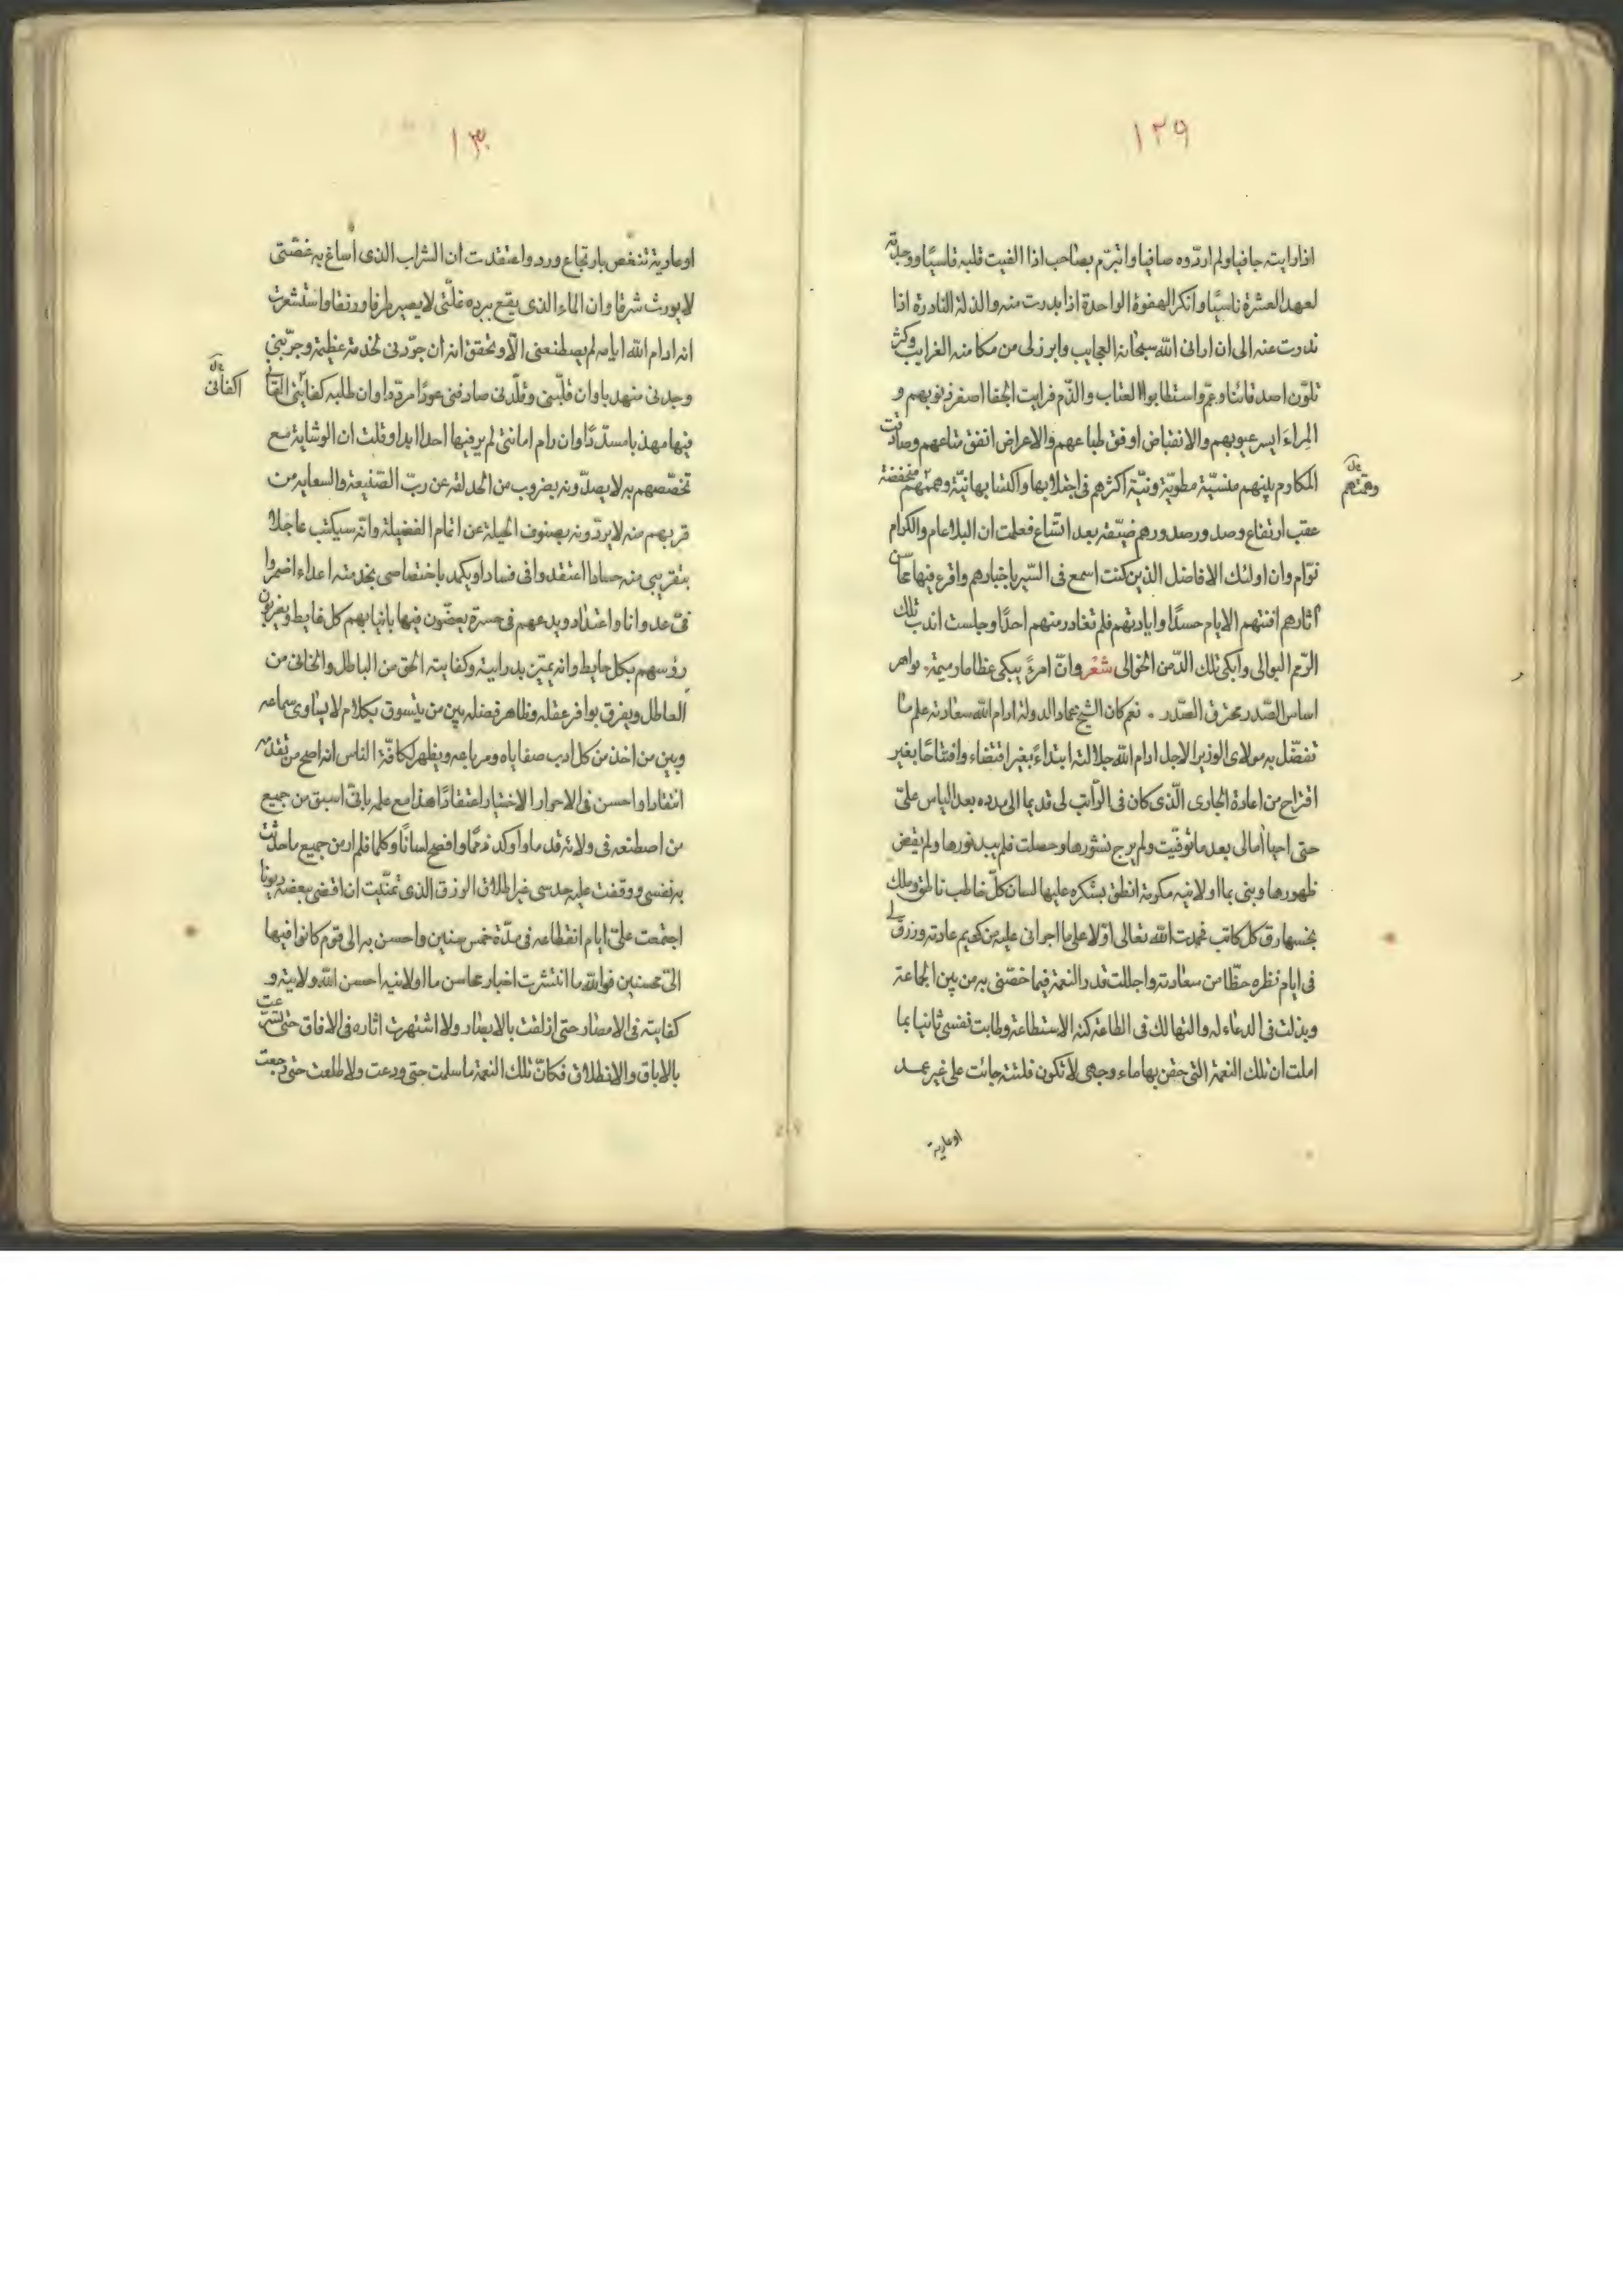 ١٢٩
اذا رايته جافيا ولم اردّوه صافيا واتبرّم بصاحب اذا الفيت قلبه قاسيًا ووجدته
لعهد العشرة ناسيًا وانكر الهفوة الواحدة اذا بدرت منه والذلة النادرة اذا
ندرت عنه الى ان ارانى الله سبحانه العجايب وابرزلى من مكامنه الغرايب وكثر
تلوّن اصدقائنا واستطابوا العتاب والذّم فرايت الجفا اصغر ذنوبهم و
المِراءَ ايسر عيوبهم والانقباض اوفق طباعهم والاعراض انفق متاعهم وصادفت
المكارم بينهم منسيّة مطويّة ونيّة اكثرهم فى اجتلابها واكتسابها نيّة وهممهم منخفضة
وهمّتهم
عقب ارتفاع وصدورصدورهم ضيّقة بعد اتّساع فعلمت ان البلاء عام والكرام
نوّام وان اولئك الافاضل الذين كنت اسمع فى السّير باخبارهم واقرء فيها محاسن
آثارهم افنتهم الايام حسدًا وابادتهم فلم تغادر منهم احدًا وجلست اندب تلك
الرّمم البوالى وابكى تلك الدّمن الخوالى شعْر وانّ امرءً يبكى عظاما رميمة. لواهر
اساس الصّدر محترق الصّدر . نعم كان الشيخ عماد الدولة ادام الله سعادته علم ما
تفضّل به مولاى الوزير الاجل ادام الله جلالته ابتداءً بغير اقتضاء وافتتاحًا بغير
اقتراح من اعادة الجارى الّذى كان فى الرّاتب لى قديما الى مدده بعد الياس علىّ
حتى احيا آمالى بعد ما توفّيت ولم يرج نشورها وحصلت فلم يبد نورها ولم يقض
ظهورها وبنى بما اولانيه مكرمة انطق بشكره عليها لسان كلّ خاطب ناطق وملك
بخسها رق كل كاتب فحمدت الله تعالى اوّلا على ما اجرانى عليه من كريم عادته ورزقنى
فى ايام نظره حظّا من سعادته واجللت قدر النعمة فيما خصّنى به من بين الجماعة
وبذلت فى الدعاء له والتهالك فى الطاعة كنه الاستطاعة وطابت نفسى ثانيا بما
املت ان تلك النعمة التى حقن بها ماء وجهى لا تكون فلتة جائت على غير عمد
او عارية
١٣٠
او عارية تنغص بارتجاع ورد واعتقدت ان الشراب الذى اساغ به غصّتى
لا يورث شرقا وان الماء الذى يقع ببرده غلّتى لا يصير طرفا ورنقا واستشعرت
انه ادام الله ايامه لم يصطنعنى الّا وتحقق انه ان جرّدنى لخدمة عظيمة وجرّبنى
وجدنى منهدبا وان قلّبنى وقلّدنى صادفنى عودًا مردّدا وان طلبه كفايتى القانى
اكفانى
فيها مهذبا مسدّدًا وان رام امانتى لم ير فيها احدا ابدا وقلت ان الوشاية مع
تخصّصهم به لا يصدّونه بضروب من الحذلقة عن ربّ الصّنيعة والسعاية من
قربهم منه لا يردّونه بصنوف الحيلة عن اتمام الفضيلة وانّه سيكتب عاجلا
بتقريبى منه حسادا اعتقدوا فى فسادا ويكمد باختصاصى بخدمته اعداء اضمروا
فىّ عدوانا واعتداء ويدعهم فى حسرة يعضّون فيها بانيابهم كل غايط ويضربون
رؤسهم بكل حايط وانه يميّز بدرايته وكفايته الحق من الباطل والخالى من
العاطل ويفرق بوافر عقله وظاهر فضله بين من يتسوق بكلام لا يساوى سماعه
وبين من اخذ من كل ادب صفاياه ومرباعه ويظهر لكافّة الناس انه اصح من تقدّمه
انتقادا واحسن فى الاحوار الاختيار اعتقادًا هذا مع علمه بانّى اسبق من جميع
من اصطنعه فى ولائه قدما واوكد ذممًا وافصح لسانًا وكلما فلم ار من جميع ما حدثت
به نفسى ووقفت عليه حدسى غير اطلاق الرزق الذى تمنّيت ان اقضى ببعضه ديونا
اجتمعت علىّ ايام انقطاعه فى مدّة خمس سنين واحسن به الى قوم كانوا فيها
الىّ محسنين فوالله ما انتشرت اخبار محاسن ما اولانيه احسن الله ولايته و
كفايته فى الامصار حتى ازلقت بالابصار ولا اشتهرت اثاره فى الافاق حتى تسرعت
بالاباق والانطلاق فكانّ تلك النعمة ما سلمت حتى ودعت ولا طلعت حتى رجعت